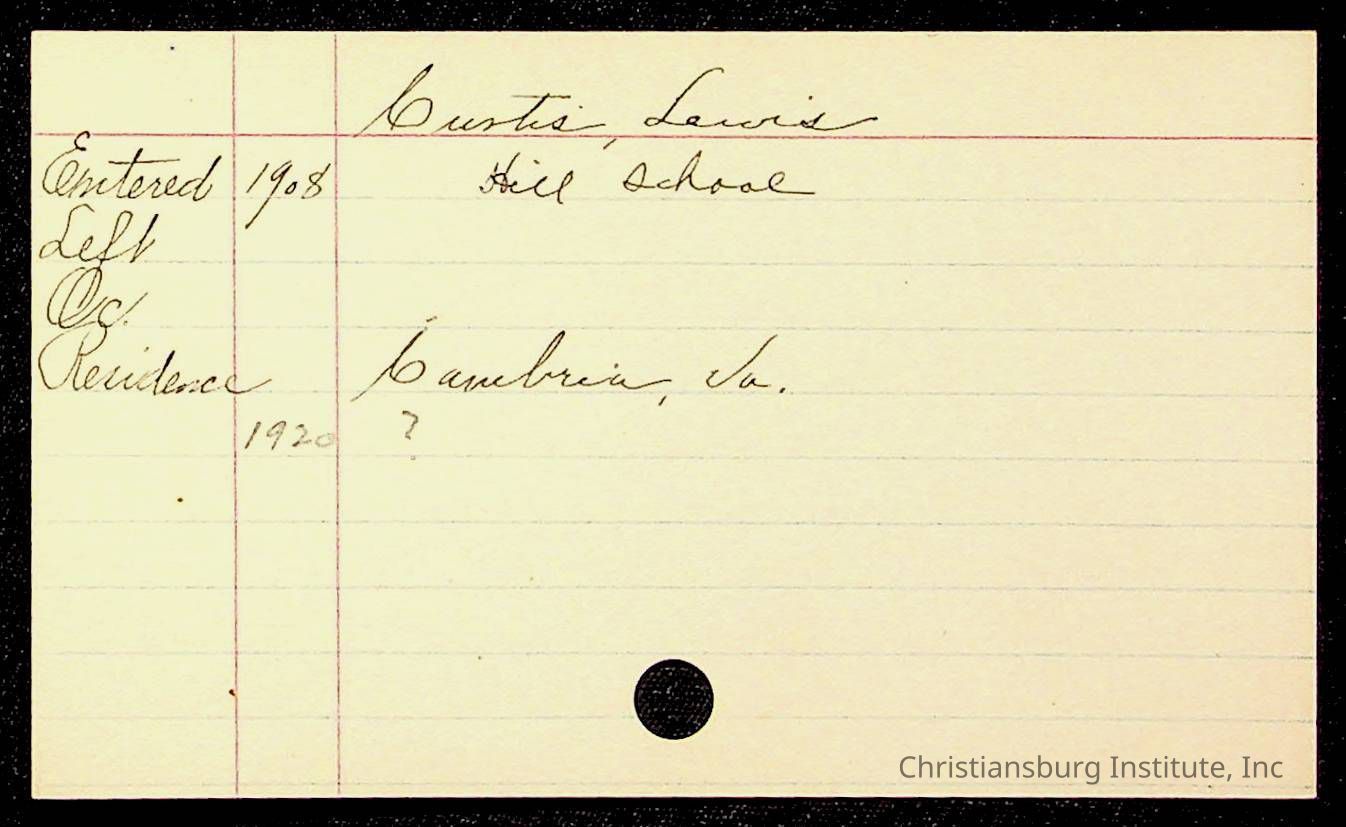 Curtis, Lewis
Entered 1908 Hill School
Left
Oc.
Residence Cambria, Va.
1920 ?
Christiansburg Institute, Inc